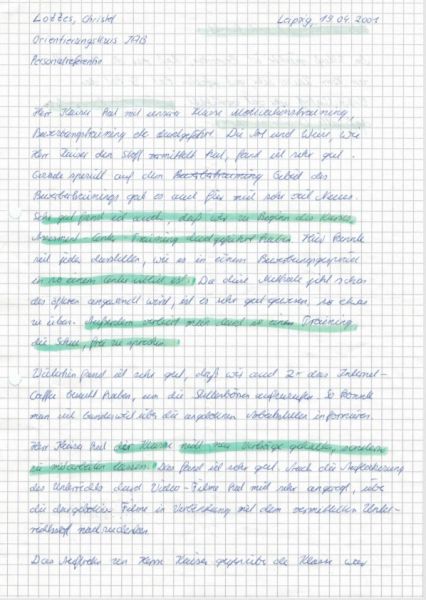 Lottes, Christof Leipzig, 19.04.2001
Orientierungskurs JAB
Personalreferentin
Herr Kaiser hat mit unserer Klasse Motivationstraining,
Bewerbungstraining etc durchgeführt. Die Art und Weise, wie
Herr Kaiser den Stoff vermittelt hat, fand ich sehr gut.
Gerade speziell auf dem Gebiet des
Bewerbertrainings gab es auch für mich sehr viel Neues.
Sehr gut fand ich auch, daß wir zu Beginn des Kurses
Assessment Center Training durchgeführt haben. Hier konnte
sich jeder darstellen, wie es in einem Bewerbungsgespräch
in so einem Center üblich ist. Da diese Methode jetzt schon
des öfteren angewandt wird, ist es sehr gut gewesen, so etwas
zu üben. Außerdem verliert man durch so einen Training
die Scheu, frei zu sprechen.
Weiterhin fand ich sehr gut, daß wir auch 2x das Internet-
Caffee besucht haben, um die Stellenbörsen aufzurufen. So konnte
man sich bundesweit über die angebotenen Arbeitsstellen informieren.
Herr Kaiser hat der Klasse nicht nur Vorträge gehalten, sondern
sie mitarbeiten lassen. Das fand ich sehr gut. Auch die Auflockerung
des Unterrichts durch Video-Filme hat mich sehr angeregt, über
die dargebotenen Filme in Verbindung mit dem vermittelten Unter-
richtsstoff nachzudenken.
Das Auftreten von Herrn Kaiser gegenüber der Klasse war